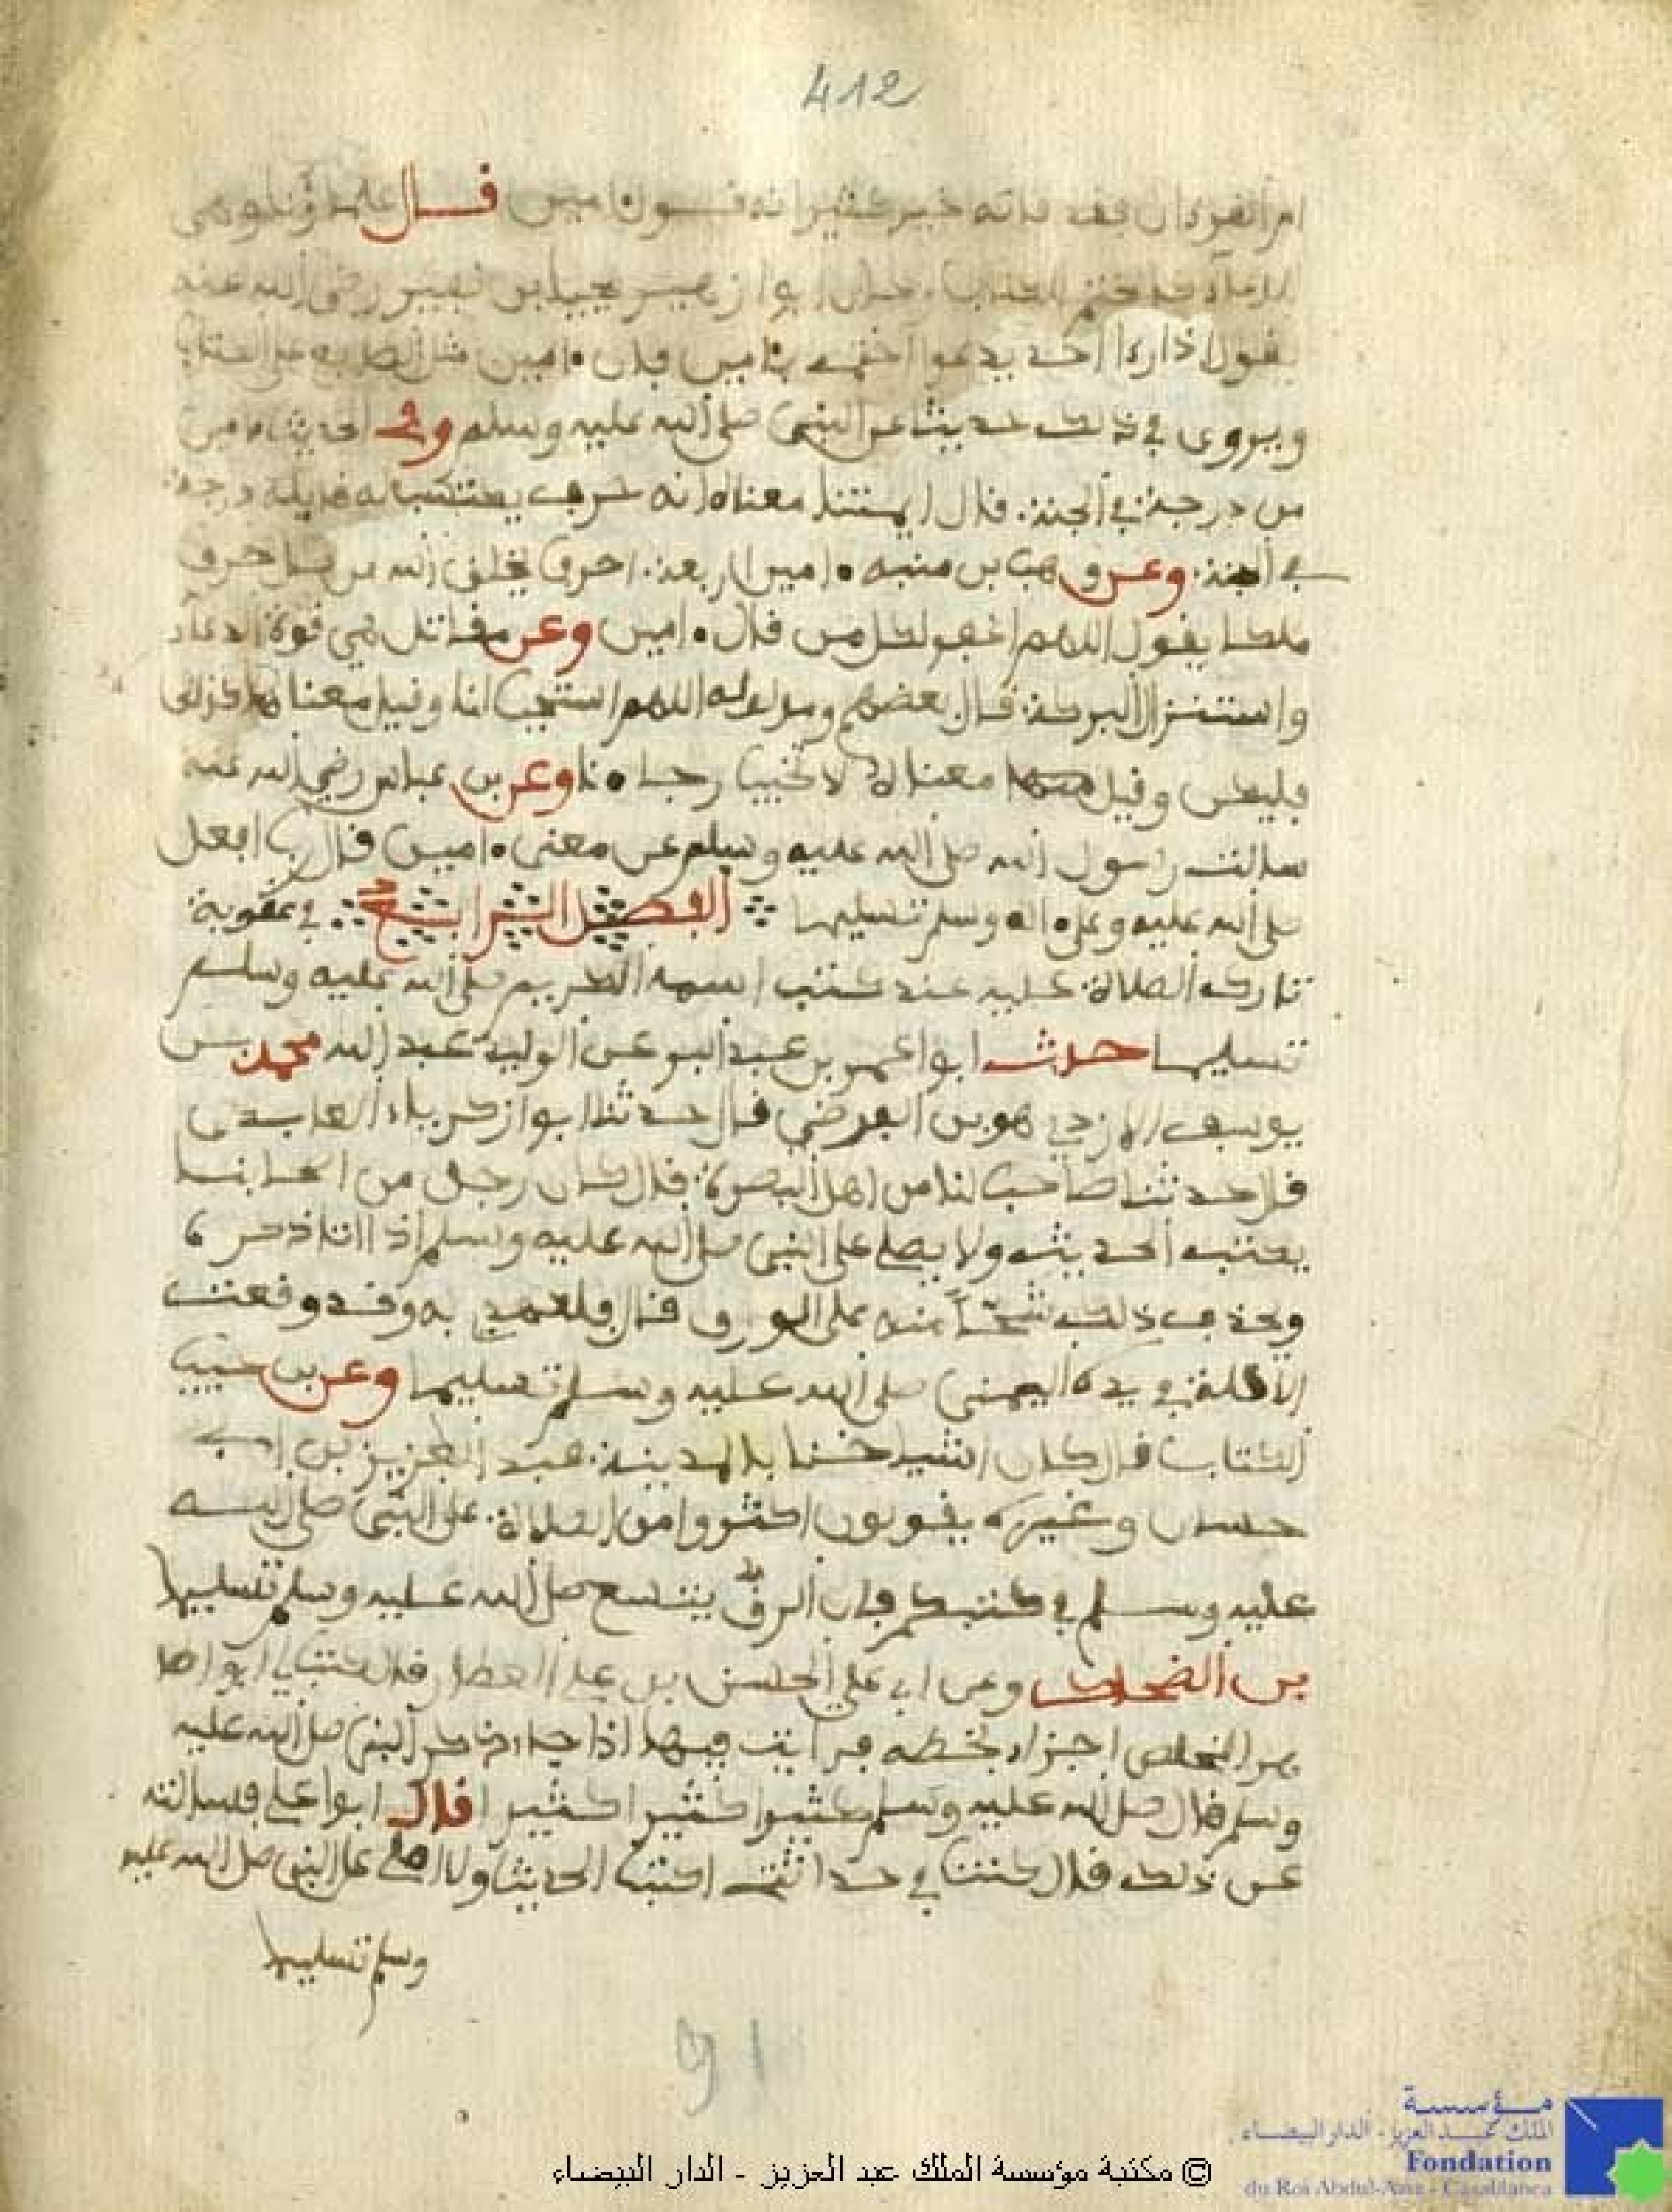 412
ام القرءان فقد فاته خير كثير انه قسول ءامين قال علمـاؤنا وهى
للدعاء كالختم للكتاب كان ابوا زهير يحيا بن نفير رضى الله عنه
يقول اذا رءا احد يدعوا اختمه بـٔامين فان ءامين مثل الطابع على الكتاب
ويروى في ذلك حديثا عن النبى صلى الله عليه وسلم وفى الحديث ءامين
من درجة في الجنة قال ايمتنا معناه انه حرف يكتسب به قايله درجة
في الجنة وعن وهب بن منبه ءامين اربعة احرف يخلق الله من كل حرف
ملكا يقول اللهم اغفر لكل من قال ءامين وعن مقاتل هي قوة الدعاء
واستنزال البركة قال بعضهم ومدلوله اللهم استجب لنا وقيل معناه كذلك
فليكن وقيل معناه لا تخيب رجاءنا وعن بن عباس رضي الله عنه
سالت رسول الله صلى الله عليه وسلم عن معنى ءامين قال رب افعل
صلى الله عليه وعلى ءاله وسلم تسليما الفصل الرابع في عقوبة
تارك الصلاة عليه عند كتب اسمه الكريم صلى الله عليه وسلم
تسليما حدث ابوا عمر بن عبد البر عن الوليد عبد الله محمد بن
يوسف الازدي هو بن الفرضي قال حدثنا ابوا زكرياء العابدى
قال حدثنا صاحب لنا من اهل البصرة قال كان رجل من اصحابنا
يكتب الحديث ولا يصلى على النبى صلى الله عليه وسلم اذا اتا ذكره
ويحذف ذلك شحا منه على الورق قال فلعهدي به وقد وقعت
الاكلة في يده اليمنى صلى الله عليه وسلم تسليما وعن بن حبيب
الكتاب قال كان اشياخنا بالمدينة عبد العزيز بن ابي
حسان وغيره يقولون اكثروا من الصلاة على النبى صلى الله
عليه وسلم في كتبكم فان الرق يتسع صلى الله عليه وسلم تسليما
بن الضحاك وعن ابي علي الحسن بن علي العطار قال كتب لي ابوا طا
هر المخلص اجزاء بخطه فرايت فيها اذا جاء ذكر النبى صلى الله عليه
وسلم قال صلى الله عليه وسلم كثيرا كثيرا كثيرا قال ابوا علي فسالته
عن ذلك قال كنت في حداثتى اكتب الحديث ولا اصلى على النبى صلى الله عليه
وسلم تسليما
© مكتبة مؤسسة الملك عبد العزيز - الدار البيضاء
مؤسسة
الملك عبد العزيز - الدار البيضاء
Fondation
du Roi Abdul-Aziz - Casablanca